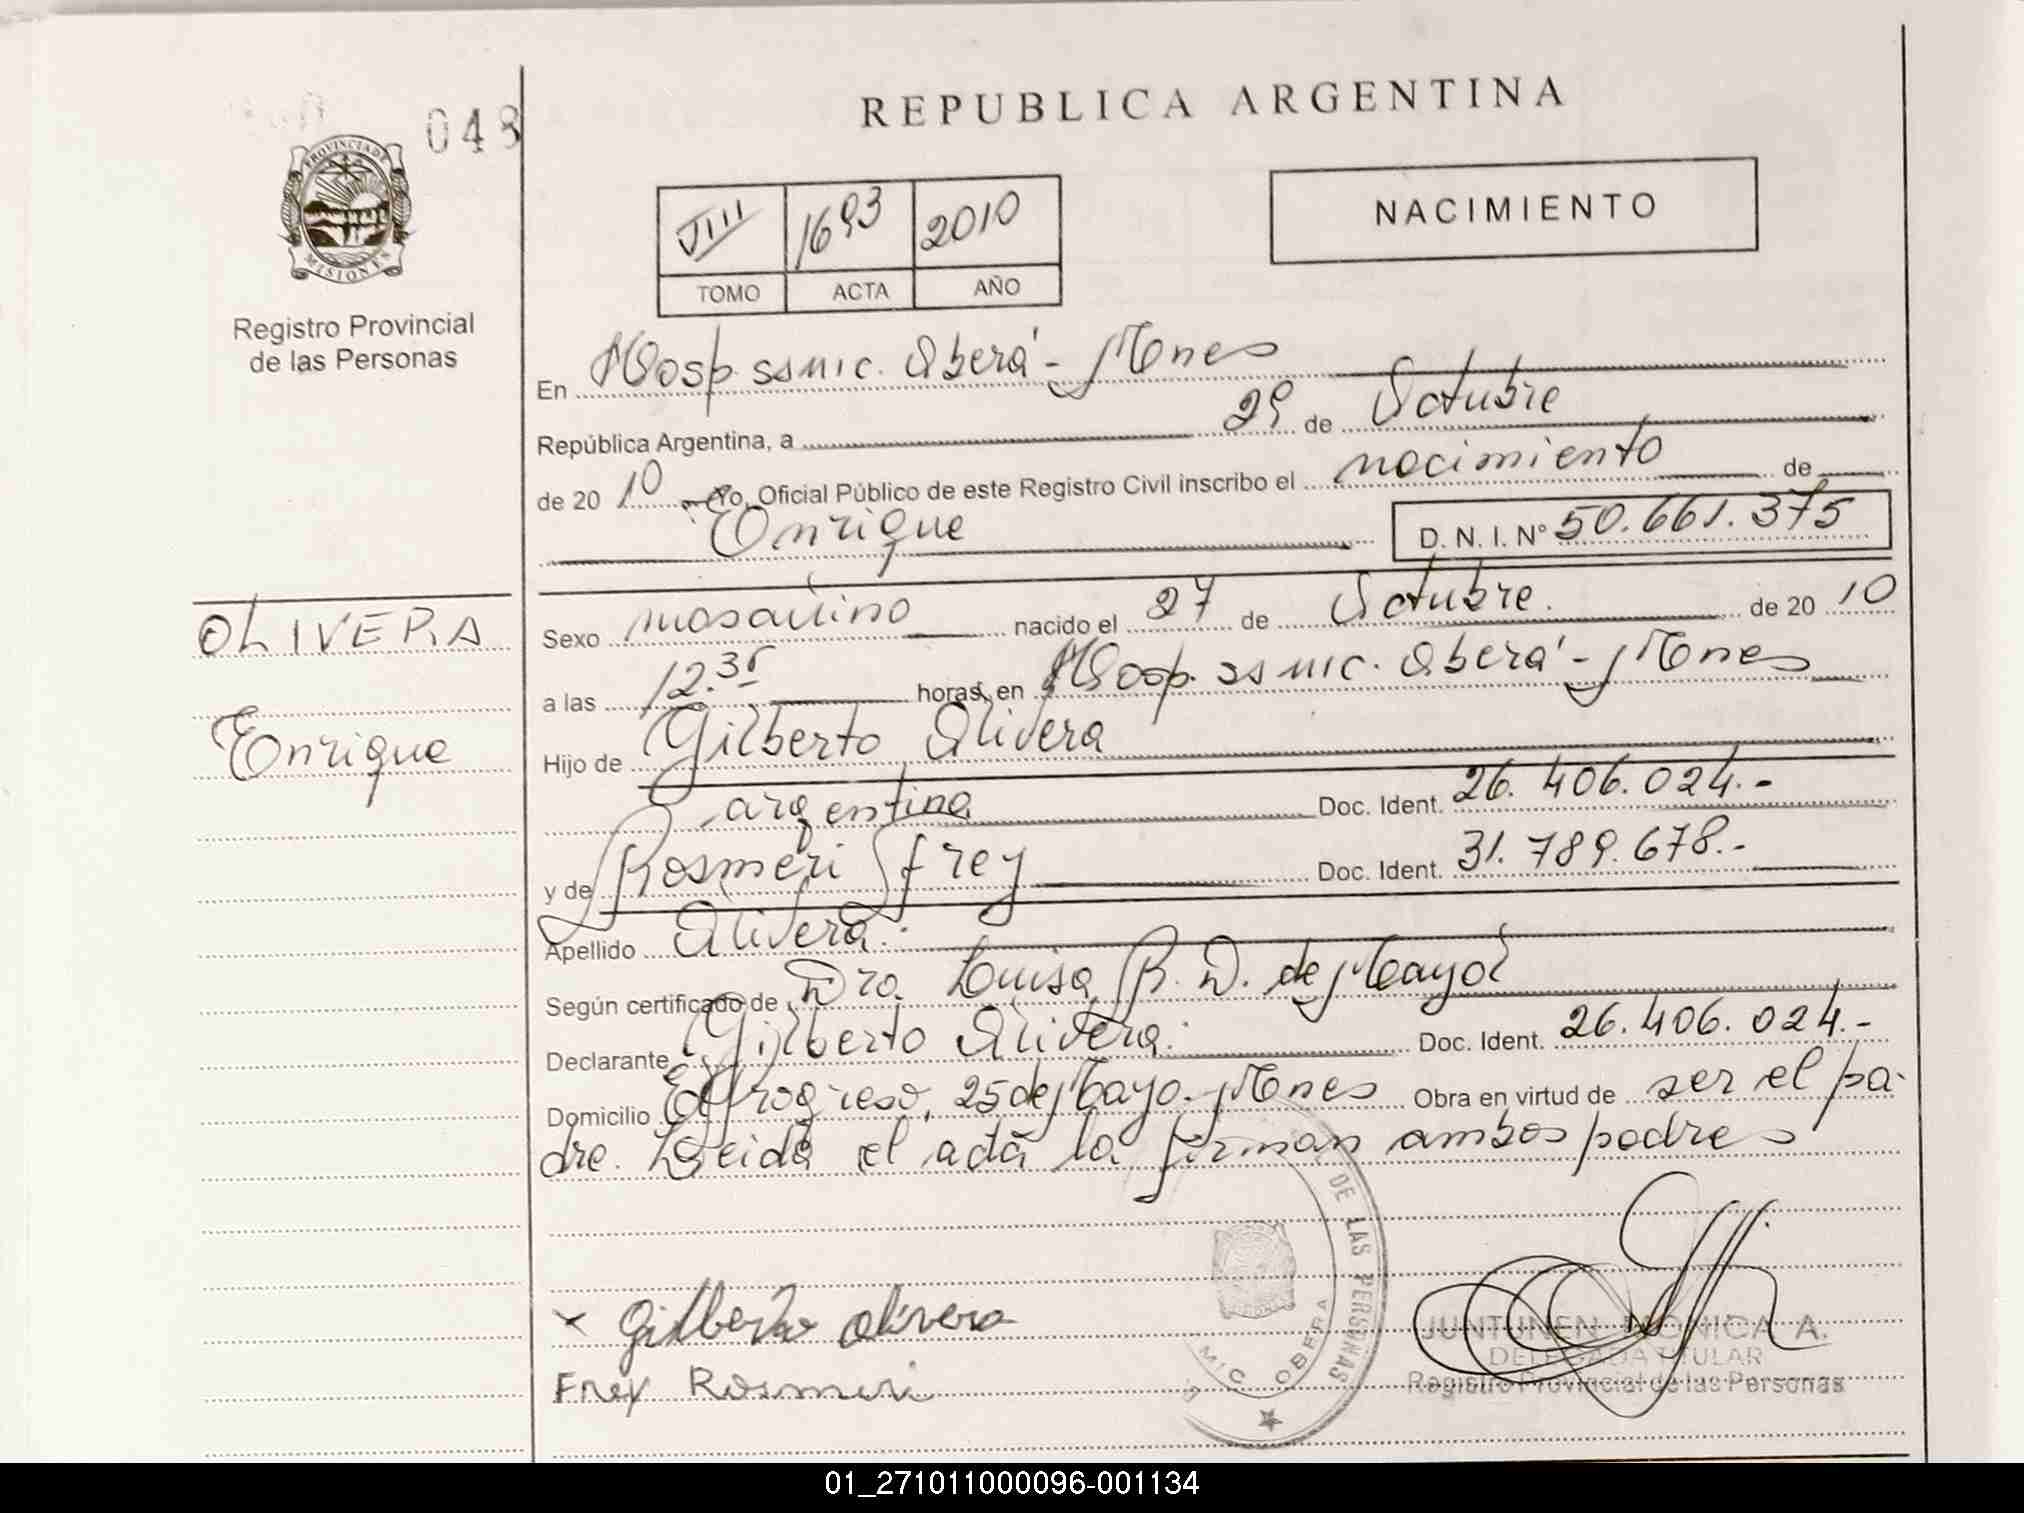 048
PROVINCIA DE
MISIONES
Registro Provincial
de las Personas
REPUBLICA ARGENTINA
VIII 1693 2010
TOMO ACTA AÑO
NACIMIENTO
En Hosp. SSMIC. Oberá - Mnes
República Argentina, a 29 de Octubre
de 20 10 Yo, Oficial Público de este Registro Civil inscribo el nacimiento de
Enrique D. N. I. Nº 50.661.375
OLIVERA
Enrique
Sexo masculino nacido el 27 de Octubre. de 20 10
a las 12.35 horas, en Hosp. SSMIC. Oberá - Mnes
Hijo de Gilberto Olivera
argentina Doc. Ident. 26.406.024.-
y de Rosmeri Frey Doc. Ident. 31.789.678.-
Apellido Olivera.
Según certificado de Dra. Luisa R. D. de Mayol
Declarante Gilberto Olivera. Doc. Ident. 26.406.024.-
Domicilio El Progreso, 25 de Mayo. Mnes Obra en virtud de ser el pa-
dre. Leída el acta la firman ambos padres
x Gilberto Olivera
Frey Rosmeri
DE LAS PERSONAS
MIC OBERA
JUNTUNEN MONICA A.
DELEGADA TITULAR
Registro Provincial de las Personas
01_271011000096-001134